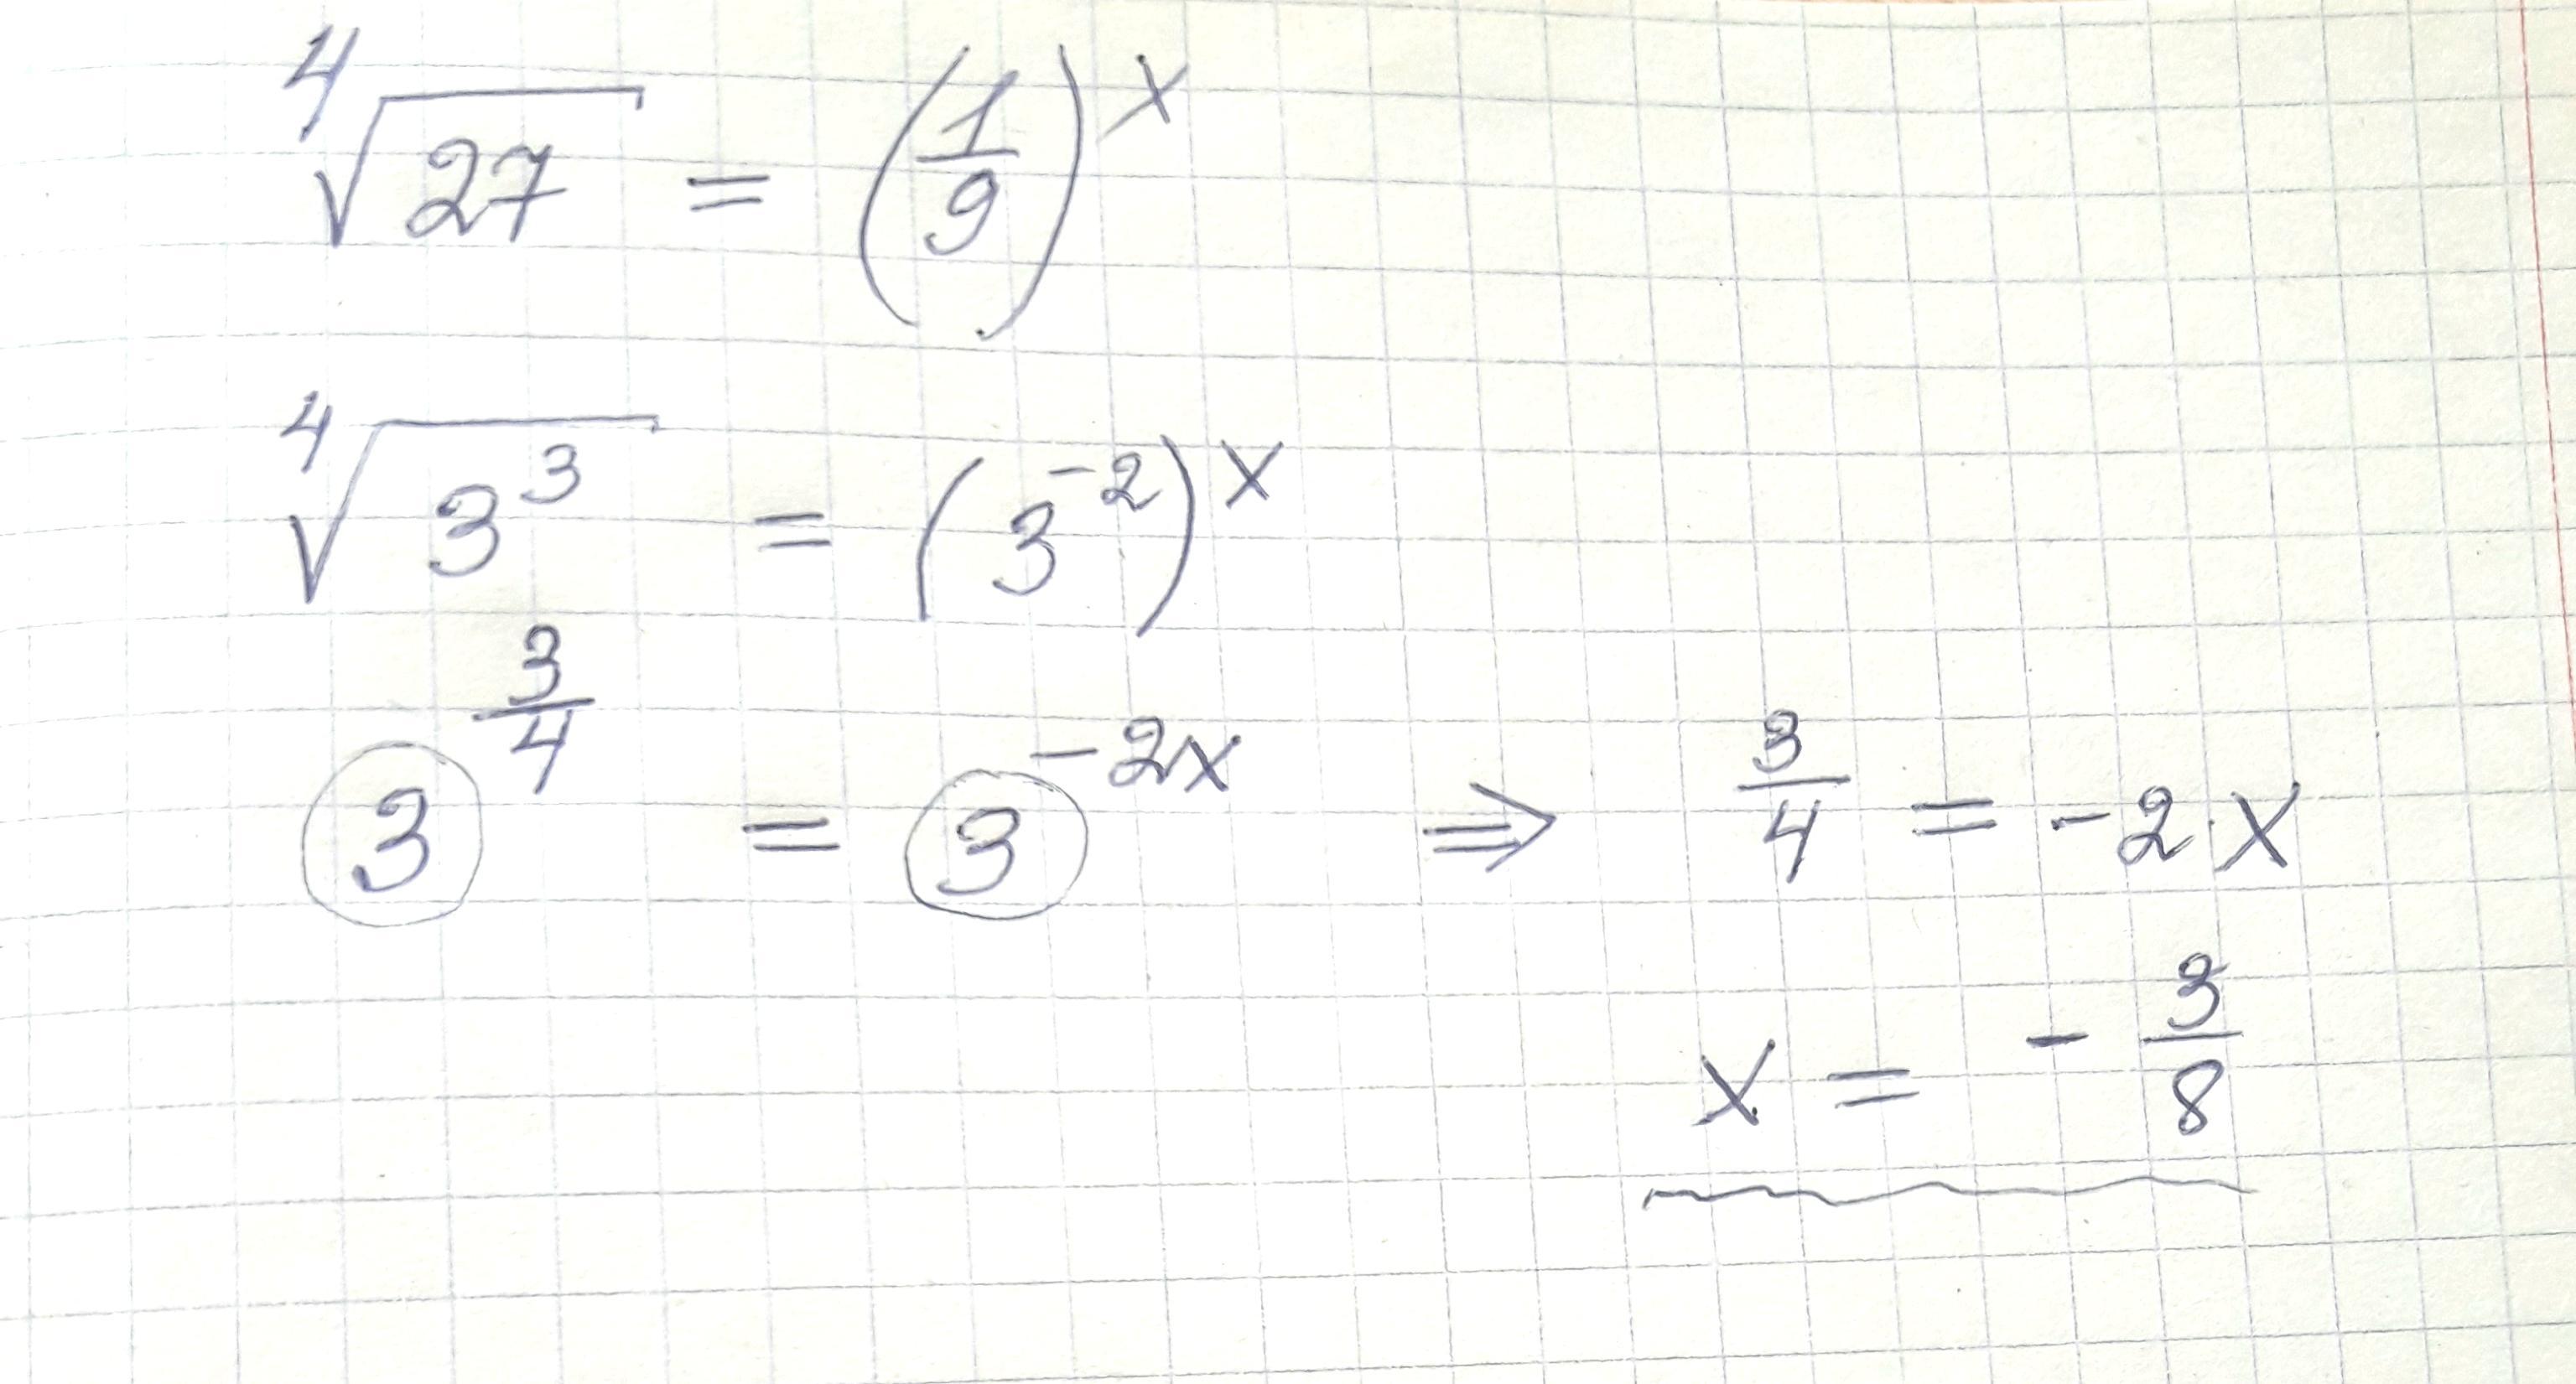 ⁴√27 = (1/9)^x
⁴√3³ = (3⁻²)^x
3^(3/4) = 3^(-2x) ⇒ 3/4 = -2·x
x = - 3/8